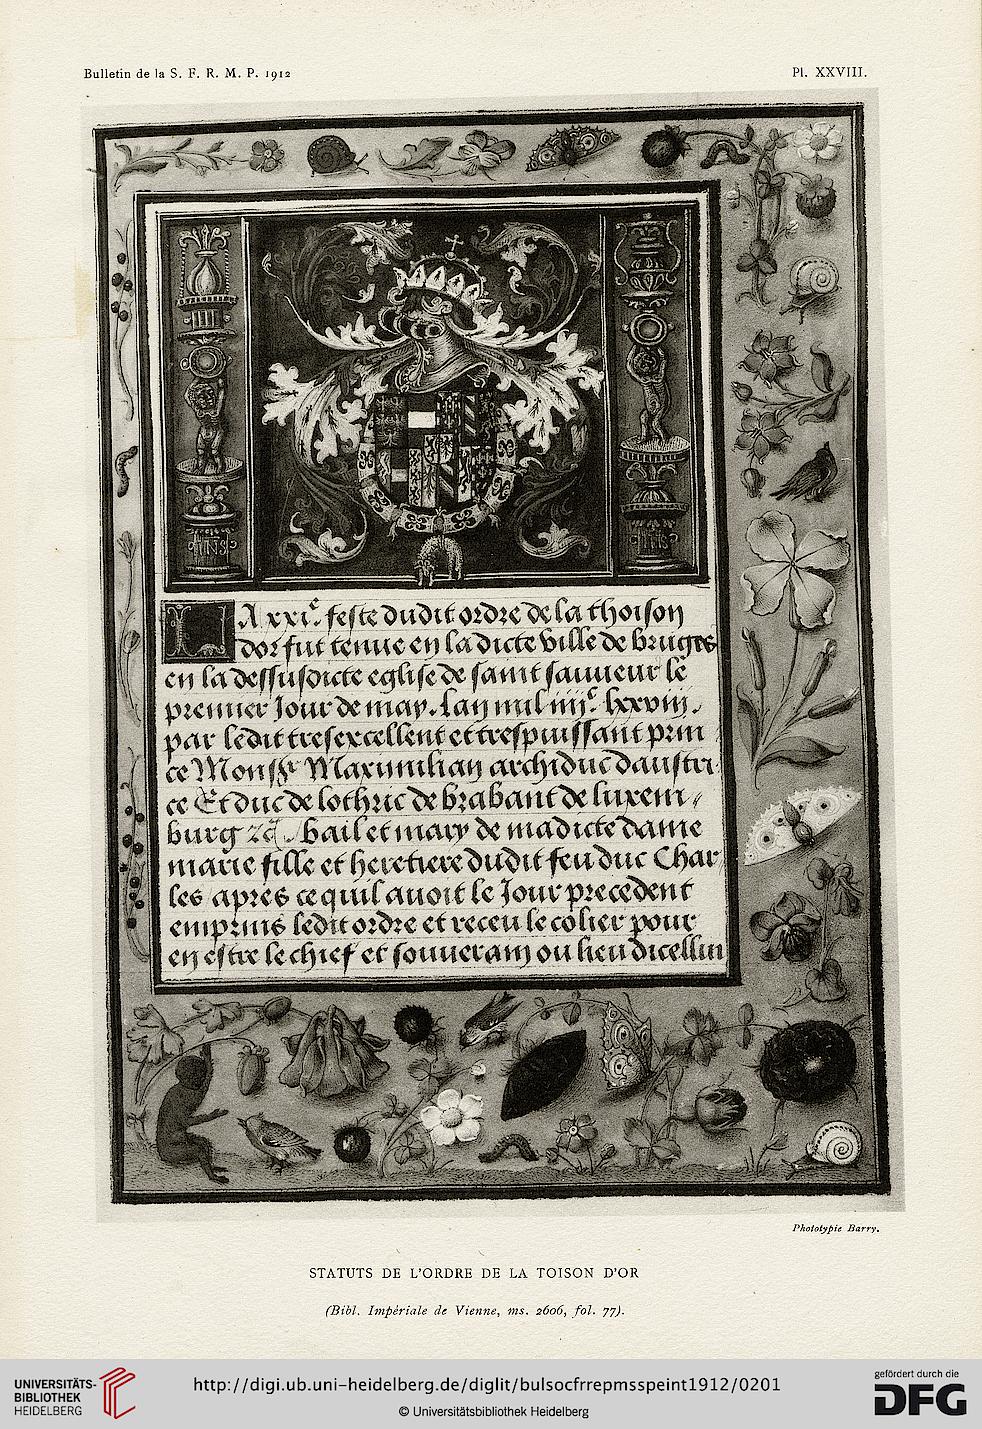 Bulletin de la S. F. R. M. P. 1912
Pl. XXVIII.
IHS
IHS
LA xxi.e feste dudit ordre de la thoison
dor fut tenue en la dicte ville de bruges
en la dessusdicte eglise de saint sauueur le
premier Jour de may. Lan mil iiijc. lxxviij.
par ledit tresexcellent et trespuissant prin
ce Monsgr Maximilian archiduc daustri
ce Et duc de lothric de brabant de luxem〃
burg &c. bail et mary de madicte dame
marie fille et heretiere dudit feu duc Char
les apres ce quil auoit le Jour precedent
emprins ledit ordre et receu le colier pour
en estre le chief et souuerain ou lieu dicellui
Phototypie Barry.
STATUTS DE L'ORDRE DE LA TOISON D'OR
(Bibl. Impériale de Vienne, ms. 2606, fol. 77).
UNIVERSITÄTS-
BIBLIOTHEK
HEIDELBERG
http://digi.ub.uni-heidelberg.de/diglit/bulsocfrrepmsspeint1912/0201
© Universitätsbibliothek Heidelberg
gefördert durch die
DFG